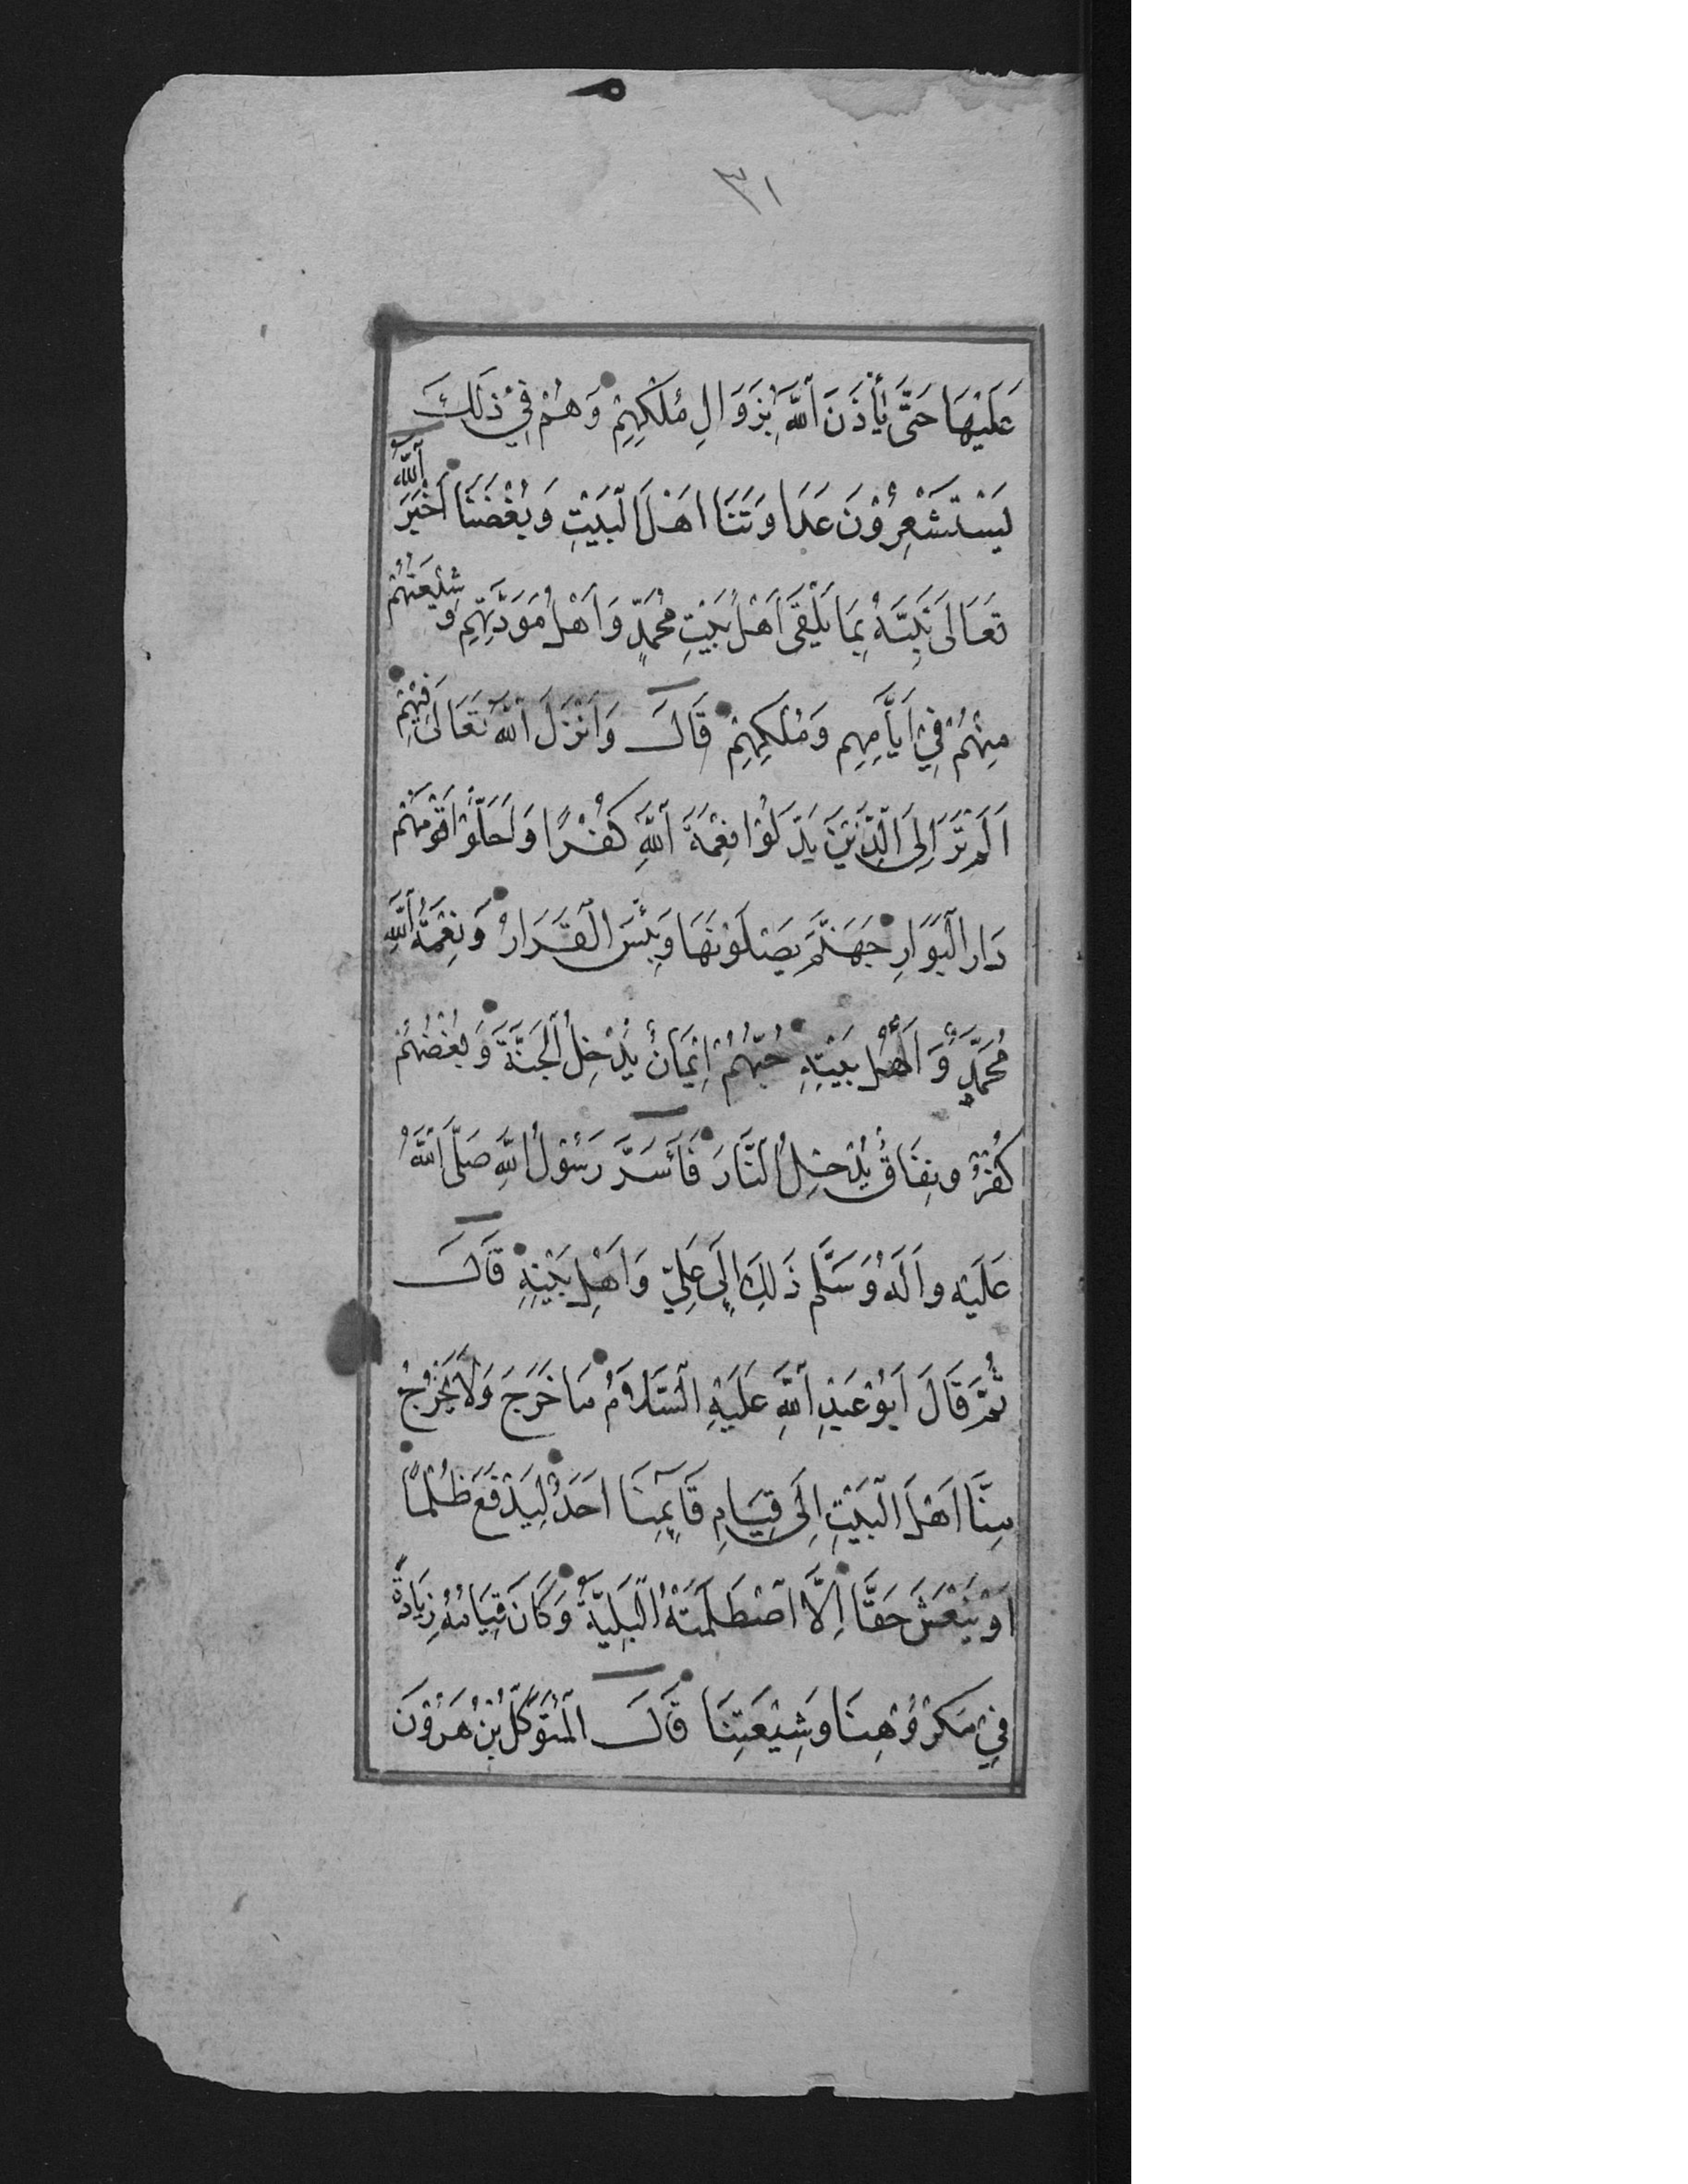 ٣١
عَلَيْهَا حَتَّى يَأْذَنَ اللَّهُ بِزَوَالِ مُلْكِهِمْ وَهُمْ فِيْ ذَلِكَ
يَسْتَشْعِرُوْنَ عَدَاوَتَنَا اَهْلَ الْبَيْتِ وَبُغْضَنَا اَخْبَرَ اللّٰهُ
تَعَالَى نَبِيَّهُ بِمَا يَلْقَى اَهْلُ بَيْتِ مُحَمَّدٍ وَاَهْلُ مَوَدَّتِهِمْ وَشِيْعَتُهُمْ
مِنْهُمْ فِيْ اَيَّامِهِم وَمُلْكِهِمْ قَالَ وَاَنْزَلَ اللّٰهُ تَعَالَى فِيْهِمْ
اَلَمْ تَرَ اِلَى الَّذِيْنَ بَدَّلُوْا نِعْمَةَ اللَّهِ كُفْرًا وَاَحَلُّوْا قَوْمَهُمْ
دَارَ الْبَوَارِ جَهَنَّمَ يَصْلَوْنَهَا وَبِئْسَ الْقَرَارُ وَنِعْمَةُ اللَّهِ
مُحَمَّدٌ وَاَهْلُ بَيْتِهِ حُبُّهُمْ اِيْمَانٌ يُدْخِلُ الْجَنَّةَ وَبُغْضُهُمْ
كُفْرٌ وَنِفَاقٌ يُدْخِلُ النَّارَ فَاَسَرَّ رَسُوْلُ اللَّهِ صَلَّى اللَّهُ
عَلَيْهِ وَاٰلِهِ وَسَلَّم ذَلِكَ اِلَى عَلِيٍّ وَاَهْلِ بَيْتِهِ قَالَ
ثُمَّ قَالَ اَبُوْ عَبْدِ اللَّهِ عَلَيْهِ السَّلَامُ مَا خَرَجَ وَلَا يَخْرُجُ
مِنَّا اَهْلَ الْبَيْتِ اِلَى قِيَامِ قَآئِمِنَا اَحَدٌ لِيَدْفَعَ ظُلْمًا
اَوْ يَنْعَشَ حَقًّا اِلَّا اصْطَلَمَتْهُ الْبَلِيَّةُ وَكَانَ قِيَامُهُ زِيَادَةً
فِيْ مَكْرُوْهِنَا وَشِيْعَتِنَا قَالَ الْمُتَوَكِّلُ بْنُ هَرُوْنَ